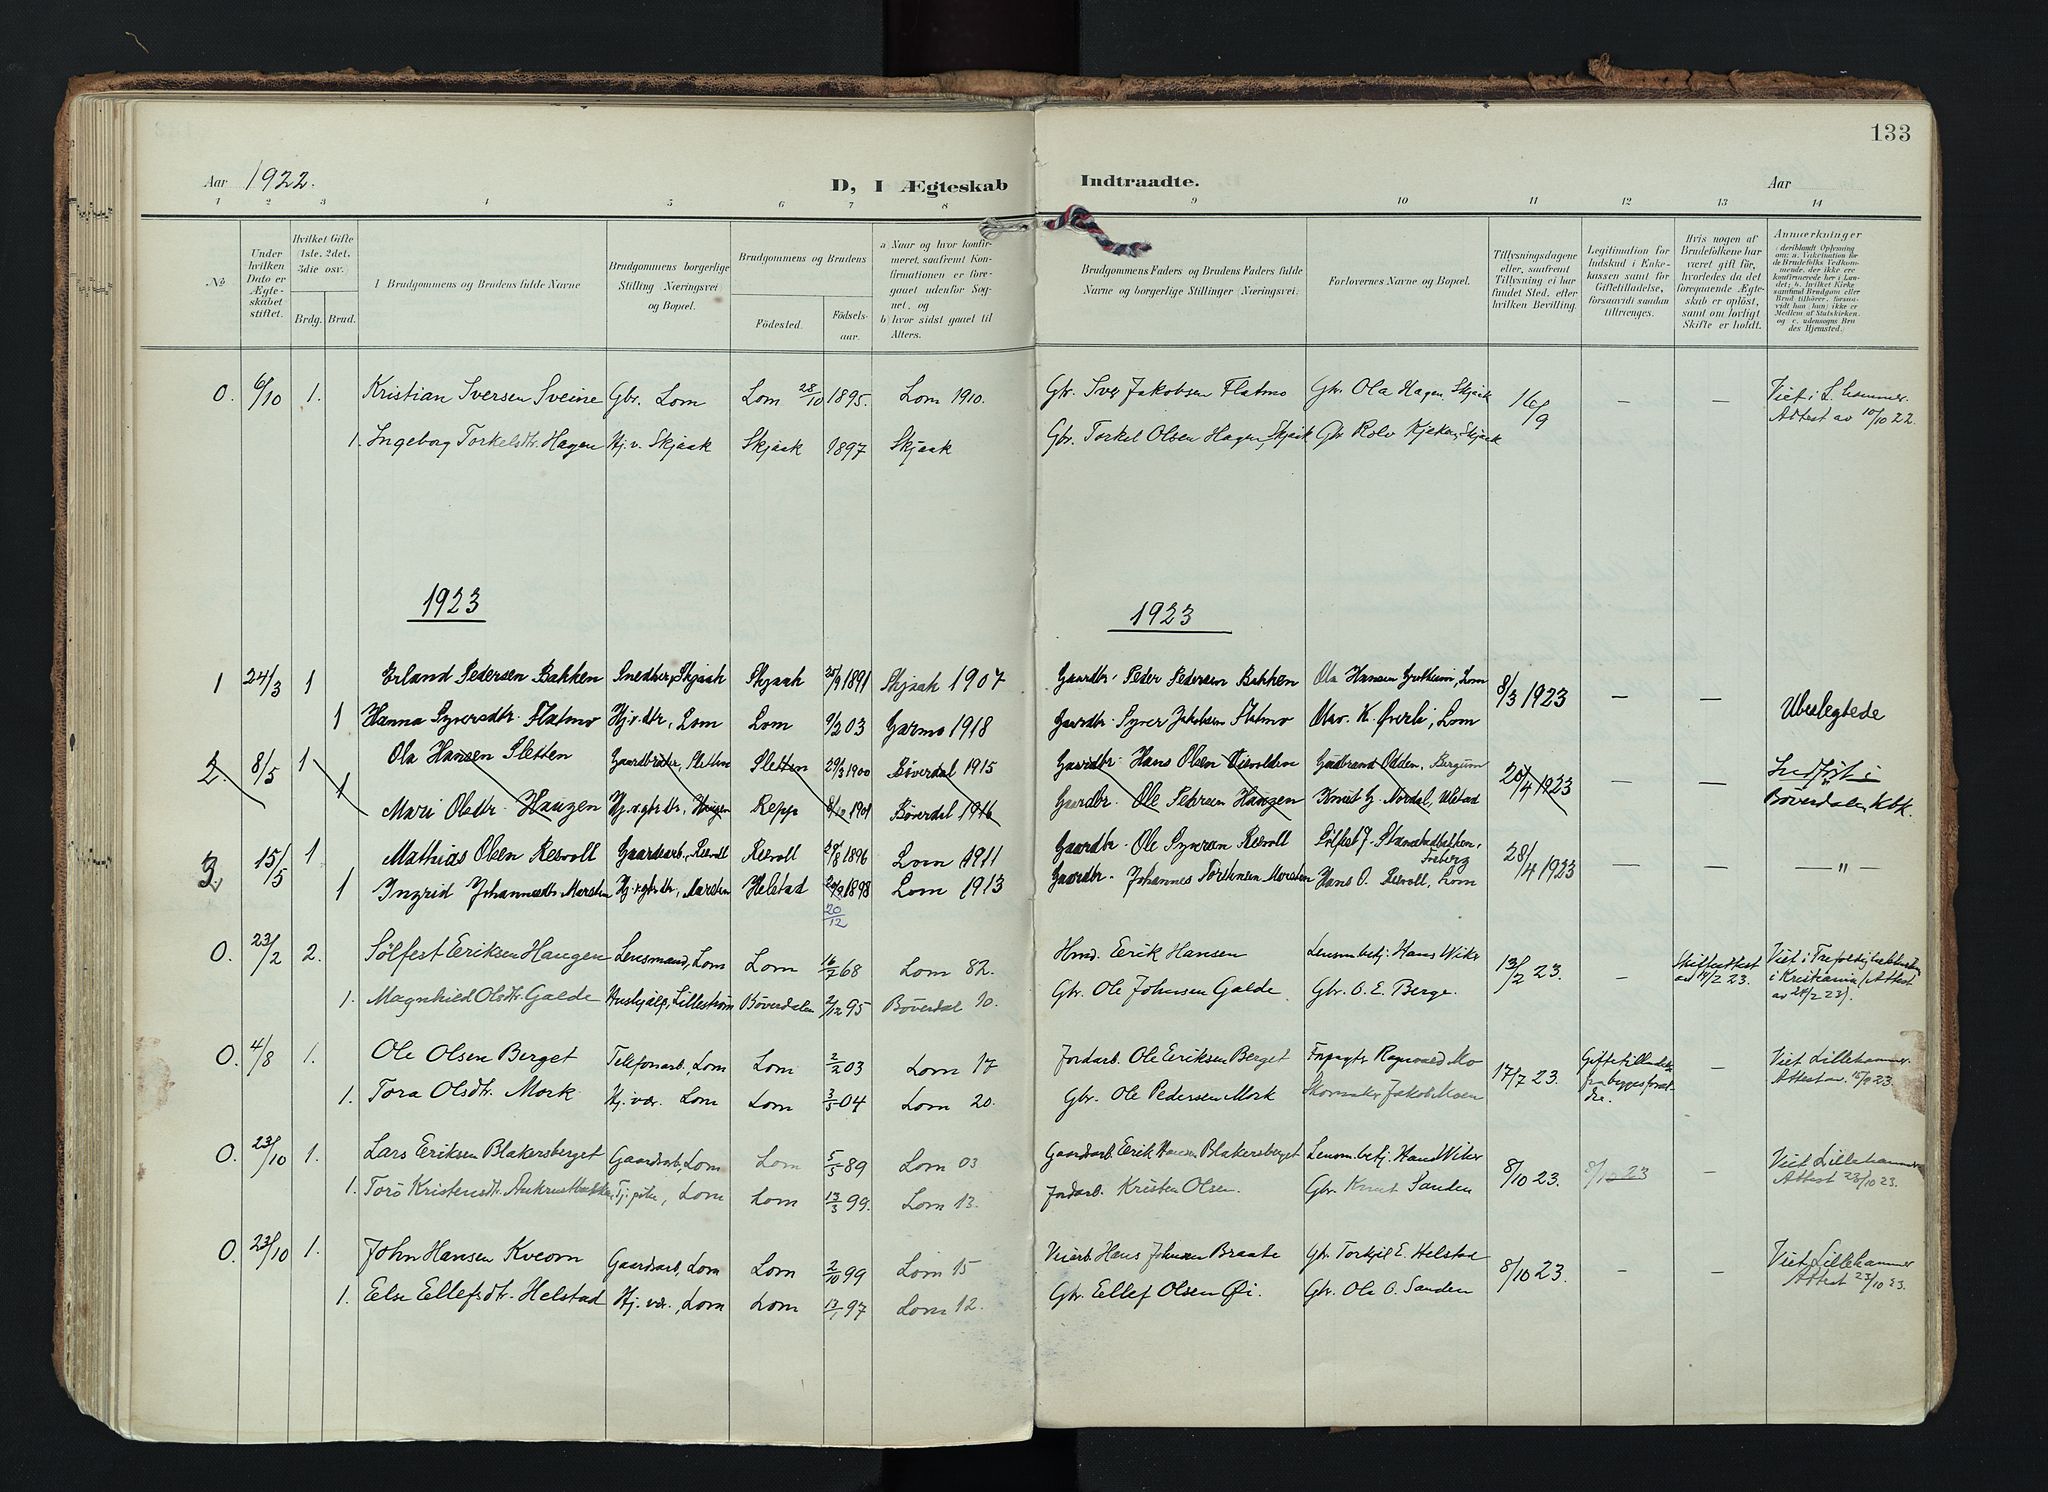 133
Aar 1922.
D, I Ægteskab Indtraadte.
Aar
1 2 3 4 5 6 7 8 9 10 11 12 13 14
No.
Under hvilken Dato er Ægteskabet stiftet.
Hvilket Gifte 1ste. 2det. 3die osv.
Brdg. Brud.
Brudgommens og Brudens fulde Navne
Brudgommens borgerlige Stilling (Næringsvei) og Bopæl.
Brudgommens og Brudens
Födested.
Födselsaar.
a) Naar og hvor konfirmeret, saafremt Konfirmationen er foregaaet udenfor Sognet, og
b) hvor sidst gaaet til Alters.
Brudgommens Faders og Brudens Faders fulde Navne og borgerlige Stillinger (Næringsvei).
Forlovernes Navne og Bopæl.
Tillysningsdagene eller, saafremt Tillysning ei har fundet Sted, efter hvilken Bevilling.
Legitimation for Indskud i Enkekassen samt for Giftetilladelse, forsaavidt saadan tiltrænges.
Hvis nogen af Brudefolkene har været gift før, hvorledes da det foregaaende Ægteskab er oplöst, samt om lovligt Skifte er holdt.
Anmærkninger
(deriblandt Oplysning om: a. Vakcination for de Brudefolks Vedkommende, der ikke ere konfirmerede her i Landet; b. hvilket Kirkesamfund Brudgom eller Brud tilhörer, forsaavidt han (hun) ikke er Medlem af Statskirken, og c. udensogns Brudes Hjemsted.)
0. 6/10 1. Kristian Iversen Sveine Gbr. Lom Lom 28/10 1895. Lom 1910. Gbr. Iver Jakobsen Flatmo Gbr. Ola Hagen, Skjaak 16/9 — — Viet i L.hammer. Attest av 10/10 22.
1. Ingeborg Torkelsdtr. Hagen Hj.v. Skjaak Skjaak 1897 Skjaak Gbr. Torkel Olsen Hagen, Skjaak Gbr. Rolv Kjeken, Skjaak
1923 1923
1 24/3 1 Erland Pedersen Bakken Snedker, Skjaak Skjaak 25/9 1891 Skjaak 1907 Gaardbr. Peder Pedersen Bakken Ola Hansen Grotheim, Lom 8/3 1923 — — Ubeslegtede
1 Hanna Syversdtr. Flatmo Hj.v. dtr., Lom Lom 9/2 03 Garmo 1918 Gaardbr. Syver Jakobsen Flatmo Olav K. Øverli, Lom
2. 8/5 1 Ola Hansen Sletten Gaardbruker, Sletten Sletten 29/3 1900 Bøverdal 1915 Gaardbr. Hans Olsen Gudbrand Odden, Bergum 20/4 1923 — — Indført i
1 Mari Olsdtr. Haugen Hj.v. gbr. dtr., Haugen Repp 8/12 1901 Bøverdal 1916 Gaardbr. Ole Petersen Haugen Knut G. Nordal, Ulstad Bøverdalen K.bk.
3. 15/5 1. Mathias Olsen Resvoll Gaardsarb., Resvoll Resvoll 24/8 1896 Lom 1911 Gaardbr. Ole Syversen Resvoll Sølfest J. 28/4 1923 — — — " —
1 Ingrid Johannesdtr. Marsten Hj.v. gbr. dtr., Marsten Helstad 1898 Lom 1913 Gaardbr. Johannes Torstensen Marsten Hans O. Resvoll, Lom
20/12
0. 23/2 2. Sølfest Eriksen Haugen Lensmand, Lom Lom 16/2 68 Lom 82. Hmd. Erik Hansen Lensm.betj. Hans Wiker 13/2 23. — Skifteattest av 14/2 23. Viet i i Kristiania (Attest av 24/2 23).
1. Magnhild Olsdtr. Galde Hushjælp, Lillestrøm Bøverdalen 2/12 95 Bøverdal 10. Gbr. Ole Johnsen Galde Gbr. O. E. Berge.
0. 4/8 1. Ole Olsen Berget Telefonarb., Lom Lom 2/2 03 Lom 17 Jordarb. Ole Eriksen Berget Forpagter Ragnvald Mo 17/7 23. Giftetilladelse fra begges forældre. — Viet Lillehammer. Attest av. 15/9 23.
1. Tora Olsdtr. Mork Hj. vær. Lom Lom 3/5 04 Lom 20. Gbr. Ole Pedersen Mork Skomaker Jakob Moen
0. 23/10 1. Lars Eriksen Blakersberget Gaardsarb., Lom Lom 5/5 89 Lom 03 Gaardsarb. Erik Hansen Blakersberget Lensm.betj. Hans Wiker 8/10 23. 8/10 23 — Viet Lillehammer Attest 23/10 23.
1. Torø Kristensdtr. Tj.pike, Lom Lom 13/3 99. Lom 13. Jordarb. Kristen Olsen. Gbr. Knut Sanden
0. 23/10 1. John Hansen Kveom Gaardsarb., Lom Lom 2/10 99 Lom 15 Veiarb. Hans Johnsen Braate Gbr. Torkjel E. Helstad 8/10 23. — — Viet Lillehammer Attest 23/10 23.
1. Else Ellefsdtr. Helstad Hj. vær., Lom Lom 13/1 97 Lom 12. Gbr. Ellef Olsen Øi. Gbr. Ola O. Sanden